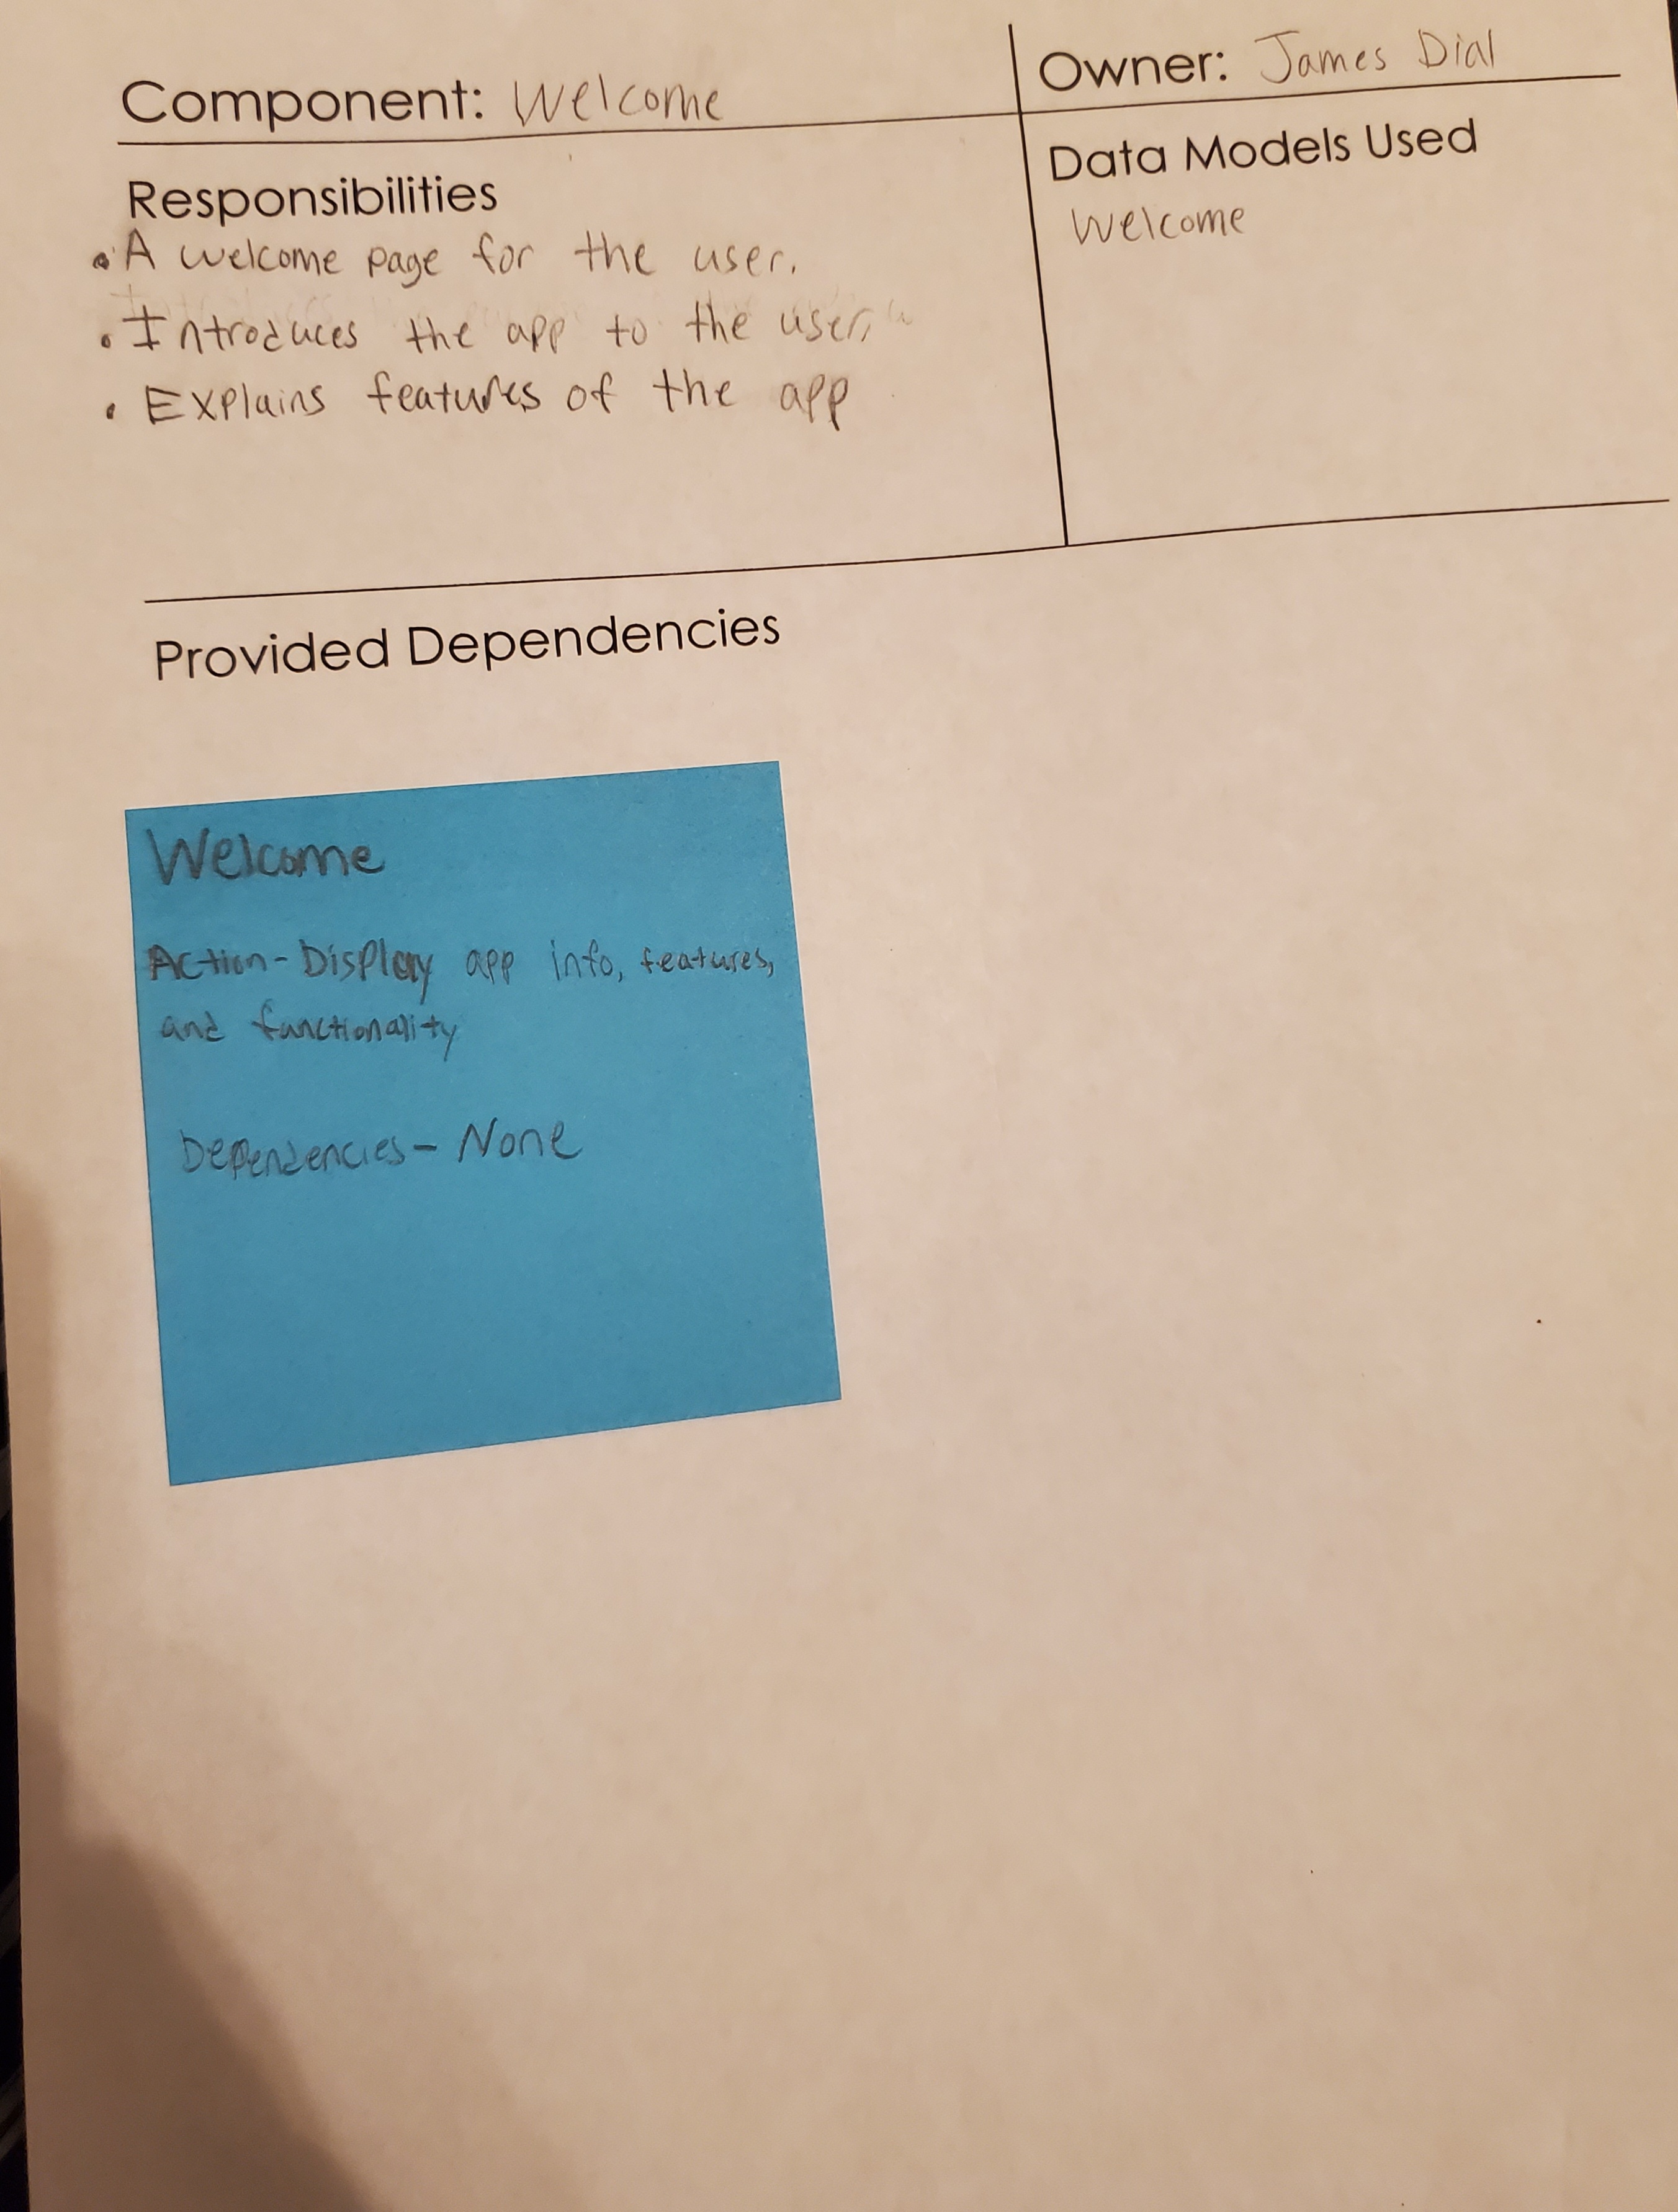 Component: Welcome
Owner: James Dial
Responsibilities
• A welcome page for the user.
• Introduces the app to the user,
• Explains features of the app
Data Models Used
Welcome
Provided Dependencies
Welcome
Action - Display app info, features,
and functionality
Dependencies - None